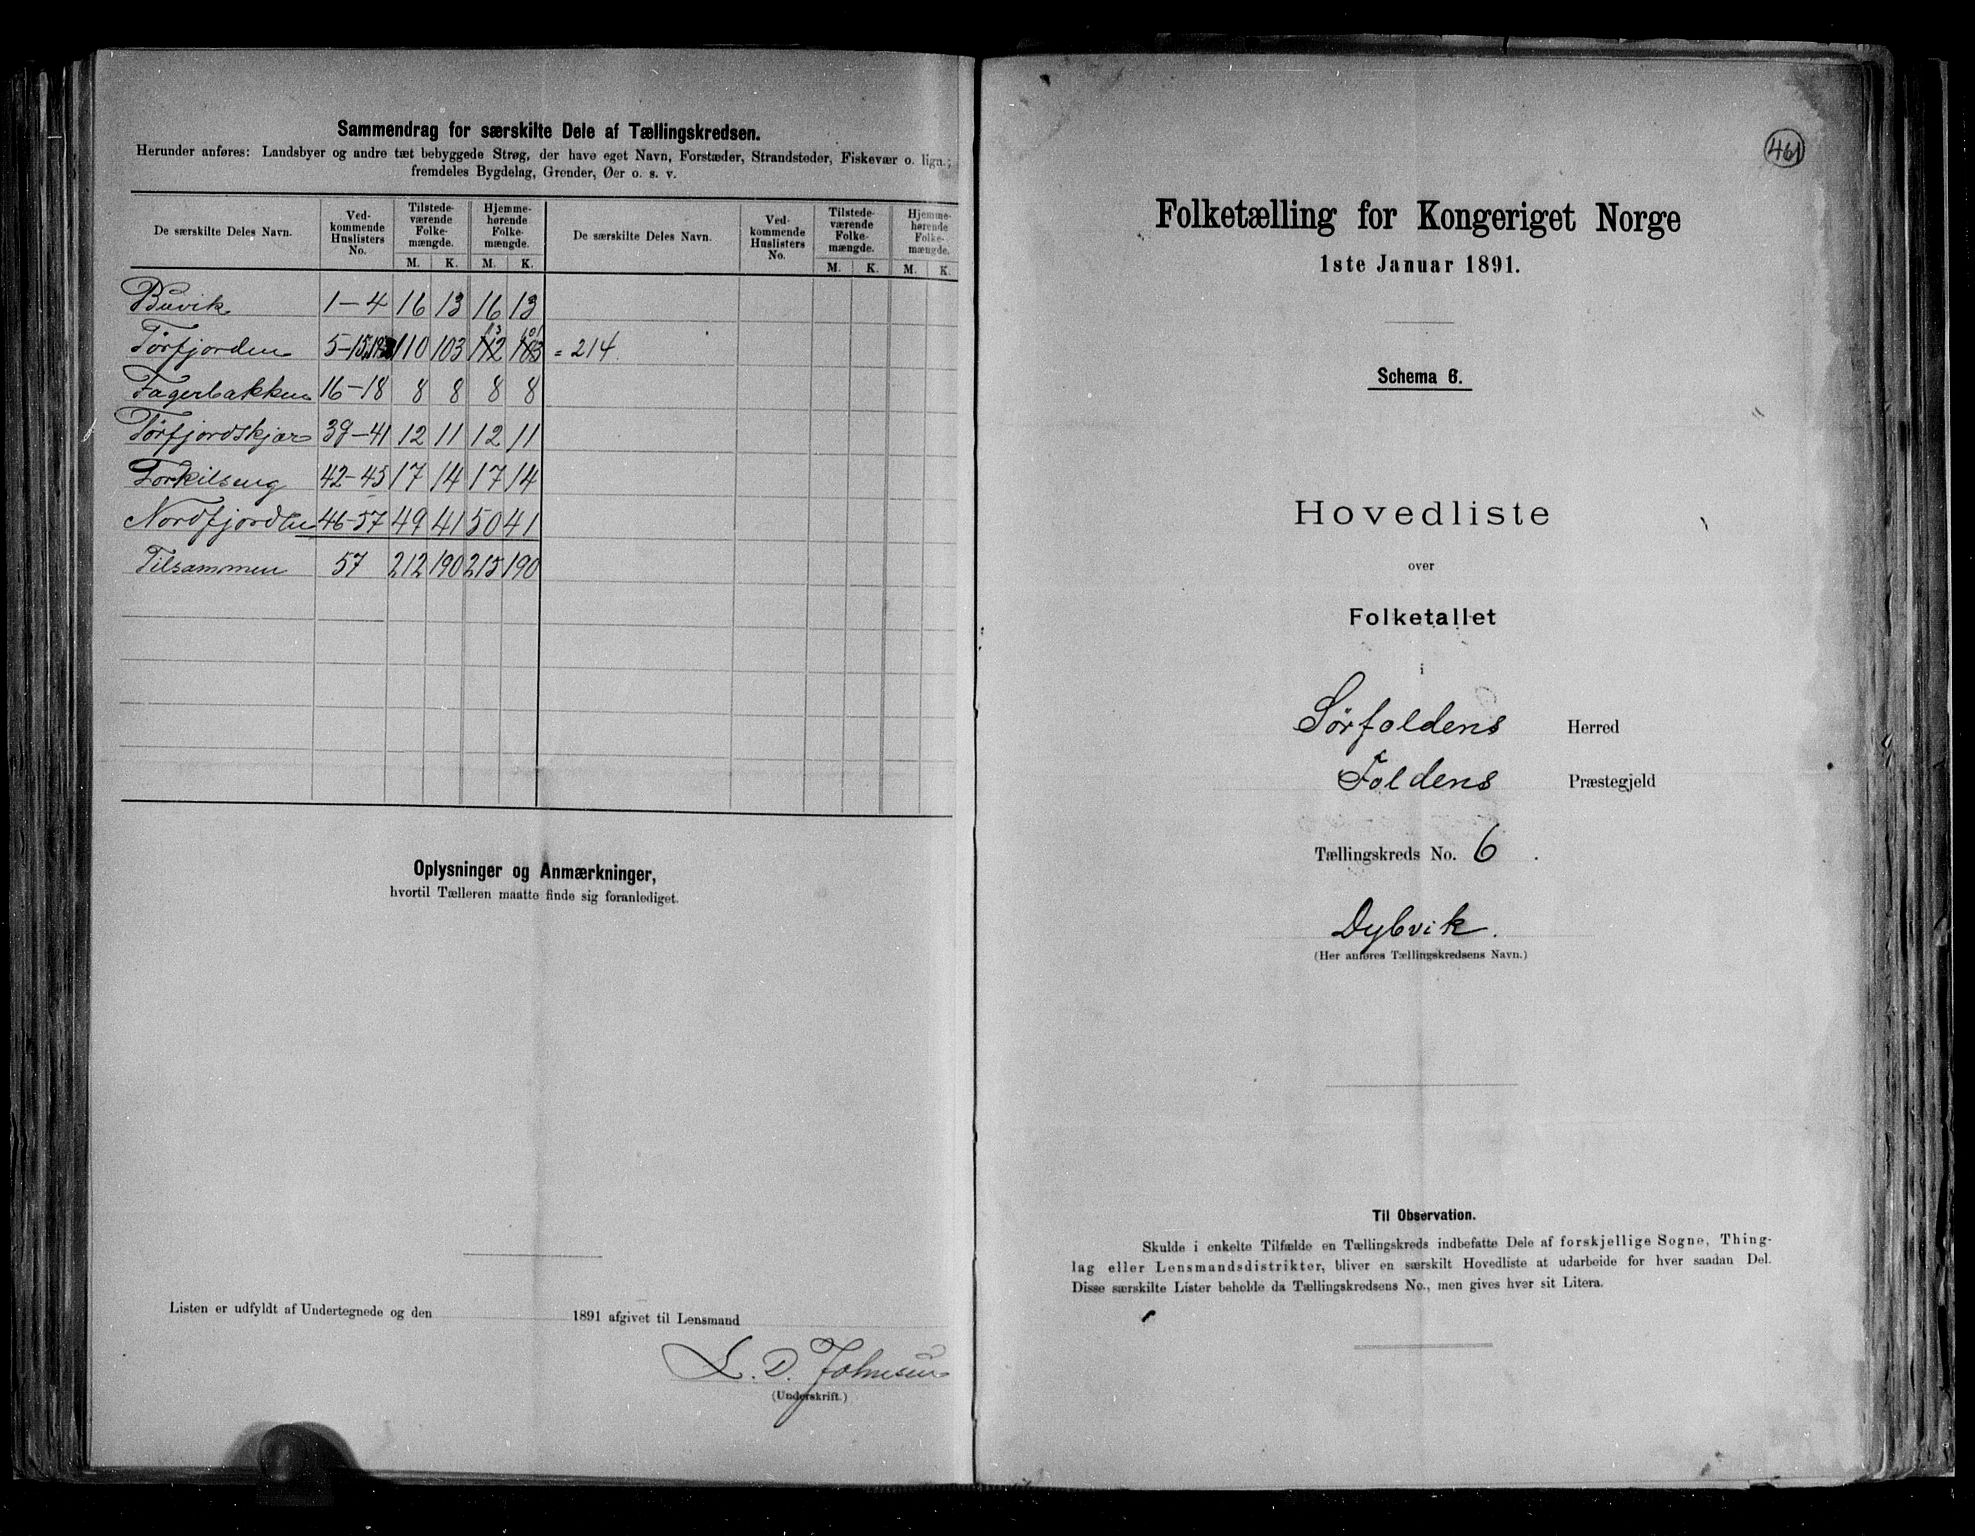 Sammendrag for særskilte Dele af Tællingskredsen.
Herunder anføres: Landsbyer og andre tæt bebyggede Strøg, der have eget Navn, Forstæder, Strandsteder, Fiskevær o. lign.;
fremdeles Bygdelag, Grender, Øer o. s. v.
De særskilte Deles Navn. Ved-kommende Huslisters No. Tilstede-værende Folke-mængde. Hjemme-hørende Folke-mængde. De særskilte Deles Navn. Ved-kommende Huslisters No. Tilstede-værende Folke-mængde. Hjemme-hørende Folke-mængde.
M. K. M. K. M. K. M. K.
Buvik 1-4 16 13 16 13
Tørfjorden 5-15, 110 103 112 103 = 214.
Fagerbakken 16-18 8 8 8 8
Tørfjordskjær 39-41 12 11 12 11
Torkilseng 42-45 17 14 17 14
Nordfjorden 46-57 49 41 50 41
Tilsammen 57 212 190 215 190
Oplysninger og Anmærkninger,
hvortil Tælleren maatte finde sig foranlediget.
Listen er udfyldt af Undertegnede og den 1891 afgivet til Lensmand
L. D. Johnsen
(Underskrift.)
461
Folketælling for Kongeriget Norge
1ste Januar 1891.
Schema 6.
Hovedliste
over
Folketallet
i
Sørfoldens Herred
Foldens Præstegjeld
Tællingskreds No. 6.
Dybvik.
(Her anføres Tællingskredsens Navn.)
Til Observation.
Skulde i enkelte Tilfælde en Tællingskreds indbefatte Dele af forskjellige Sogne, Thing-
lag eller Lensmandsdistrikter, bliver en særskilt Hovedliste at udarbeide for hver saadan Del.
Disse særskilte Lister beholde da Tællingskredsens No., men gives hver sit Litera.